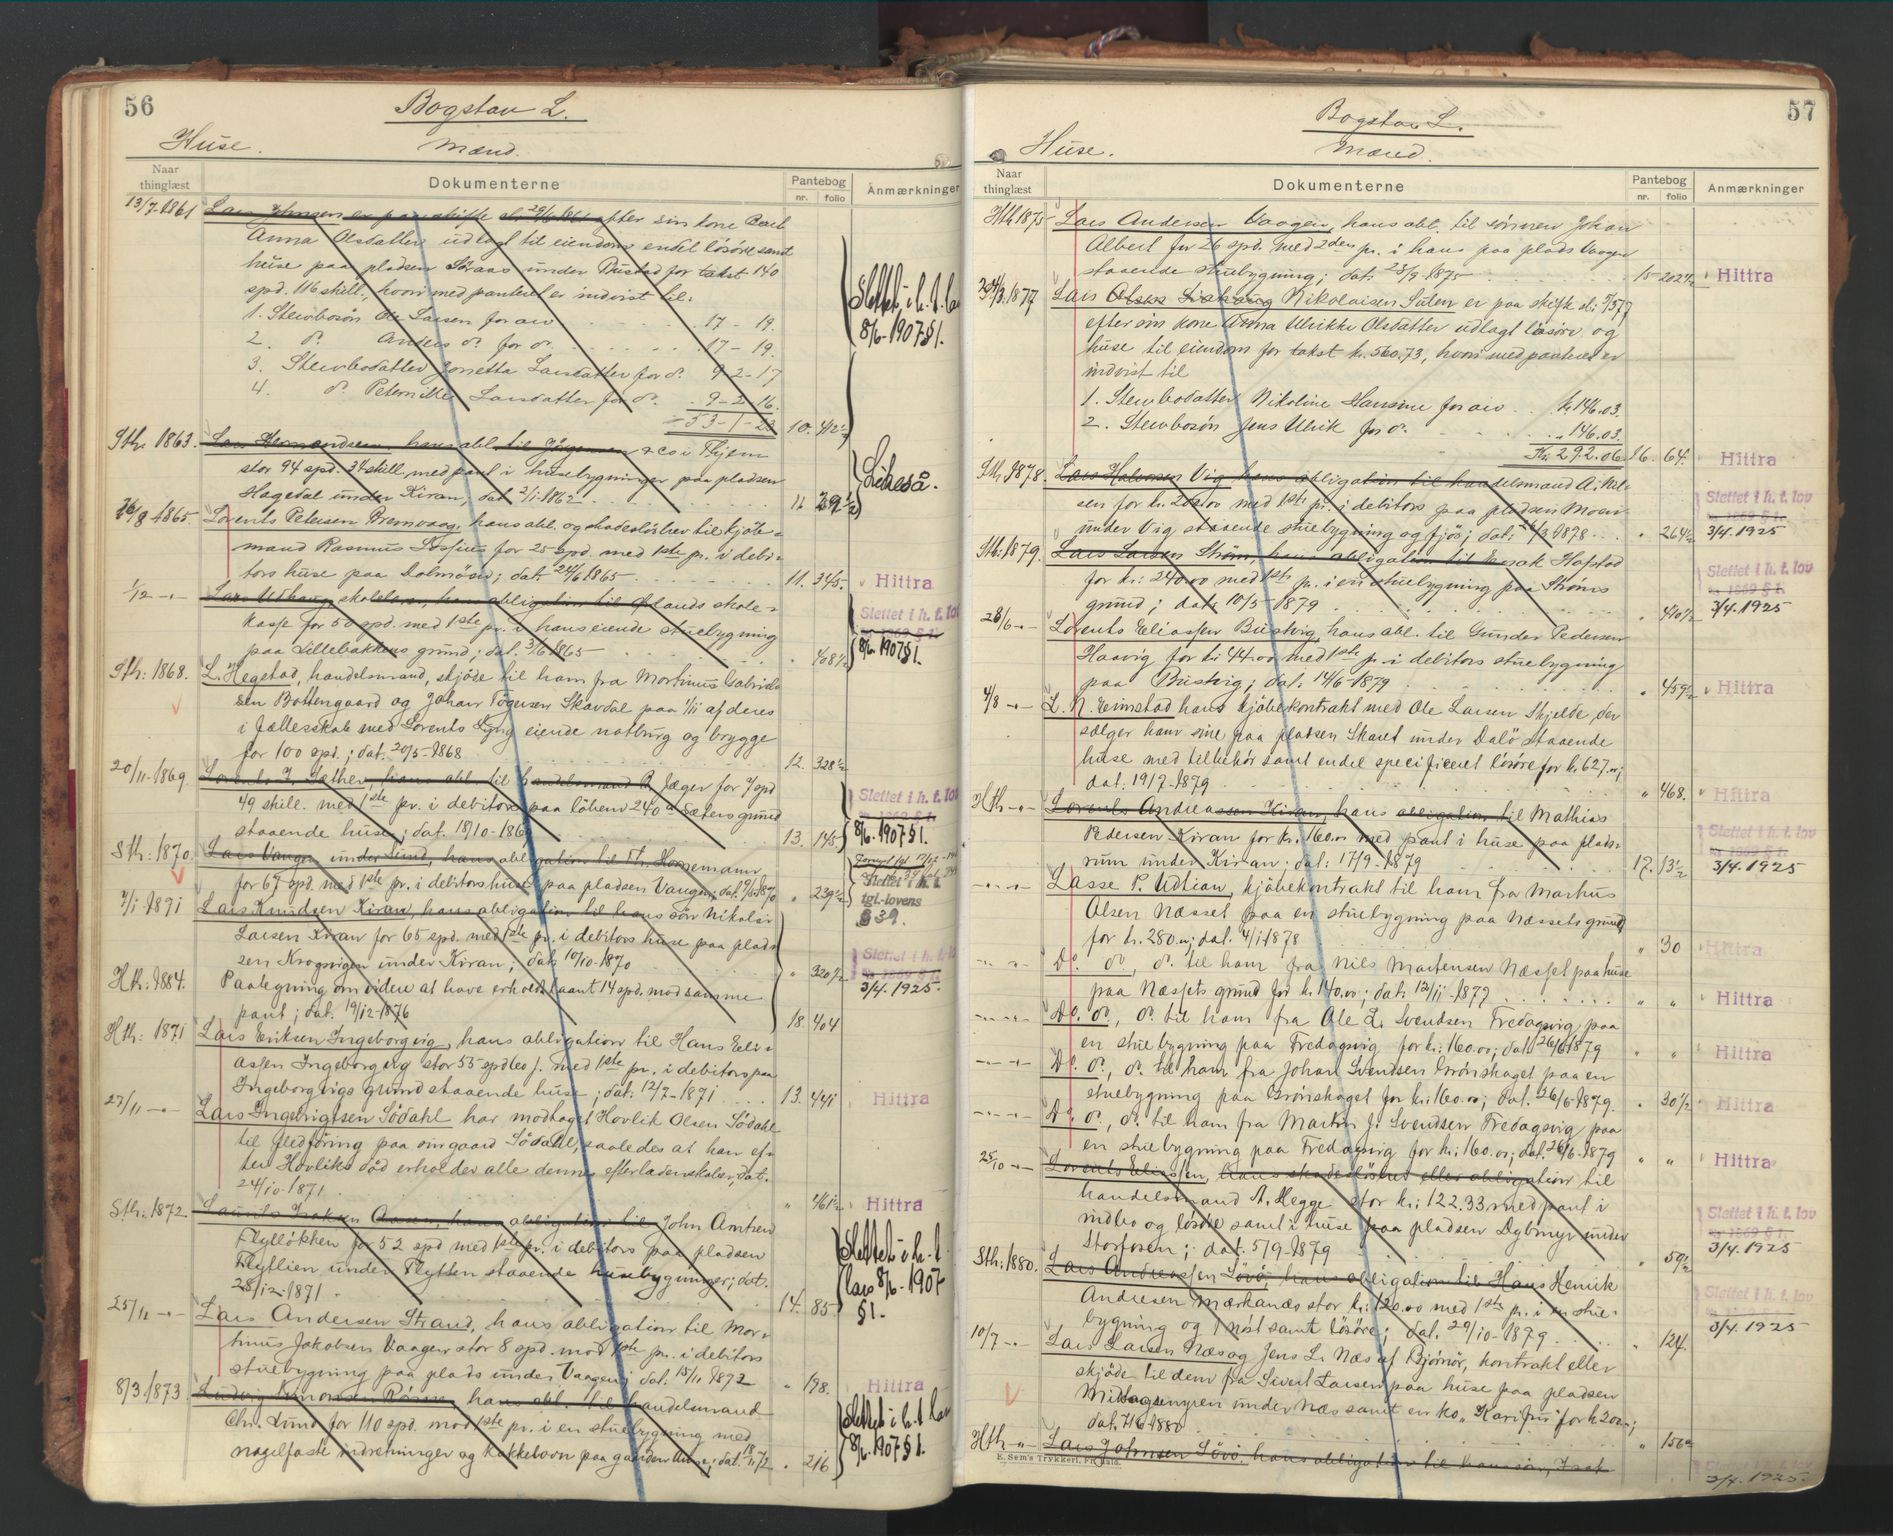 56
Bogstav L.
Huse. Mænd.
Naar thinglæst Dokumenterne Pantebog nr. folio Anmærkninger
13/7-1861 Lars Johnsen er paa skifte efter sin kone Berit
Anna Olsdatter udlagt til eiendom endel lösöre samt
huse paa pladsen Aaraas under Bustad for takst 140
spd. 116 skill., hvori med panteret er indvist til:
1. Stervbosön Ole Larsen for arv 17 - 19.
2. do. Anders do. for do. 17 - 19.
3. Stervbodatter Larsdatter for do. 9-2-17
4. do. Peternille Larsdatter for do. 9-2-16.
53-1-23 10. 412½
Slettet i h. t. lov
8/6-1907 § 1.
Sth. 1863. Lars hans abl. til Jörgensen & co i Thjem
stor 94 spd. med pant i husebygninger paa pladsen
Hagedal under Kiran; dat. 2/1-1862 11 29½
Likeså.
26/8 1865. Lorents Petersen Bremvaag, hans abl. og skadeslösbrev til kjöb-
mand Rasmus for 25 spd. med 1ste pr. i debi-
tors huse paa Dolmöen; dat. 24/6 1865 11. 345. Hittra
1/12 -"- Lars Udhaug skolelærer, hans obligation til Ørlands skole-
kasse for 50 spd. med 1ste pr. i hans eiende stuebygning
paa Lillebakkens grund; dat. 3/6 1865 " 408½
Slettet i h. t. lov
8/6. 1907 § 1.
Sth: 1868. L. Hegstad, handelsmand, skjöde til ham fra Mortinus Gabriel-
sen Bottengaard og Johan Tögersen Skavdal paa 1/11 af deres
i fællesskab med Lorents Lyng eiende notburg og brygge
for 100 spd.; dat. 20/5-1868 12. 328½
20/11-1869. Lorents J. Sæther, hans abl. til handelsmand R. Jæger for 7 spd
49 skill. med 1ste pr. i debitors paa löbenr 240 a Sæters grund
staaende huse; dat. 18/10-186 13. 145
Slettet i h. t. lov
8/6. 1907 § 1.
Sth: 1870. Lars Vangen under Lund, hans obligation til Th. Hornemann
for 67 spd. med 1ste pr. i debitors huse paa pladsen Vangen; dat. 9/6 1870 " 239½
Slettet i h. t.
tgl.-lovens
§ 39.
7/1 1871 Lars Knudsen Kiran, hans obligation til hans sön Nikolai
Larsen Kiran for 65 spd. med 1ste pr. i debitors huse paa plad-
sen Krogvigen under Kiran; dat. 10/10-1870 " 320½
Slettet i h. t. lov
3/4. 1925.
Hth: 1884. Paategning om videre at have erholdt laant 14 spd. mod samme
pant; dat. 19/12-1876 18. 404
Hth: 1871 Lars Eriksen Ingeborgvig, hans obligation til Hans Eli-
assen Ingeborgvig stor 55 spdleo f. med 1ste pr. i debitors paa
Ingeborgvigs grund staaende huse; dat. 12/7-1871 13. 441 Hittra
27/11 -"- Lars Ingebrigtsen Södahl har modtaget Hovlik Olsen Södahl
til Födföring paa sin gaard Södahl, saaledes at han ef-
ter Hovliks död erholder alle dennes efterladenskaber; dat.
24/10-1871. " 461½ Hittra
Sth: 1872. Laurits Isaksen Aasen, hans obligation til John Arntsen
Flytlökken for 52 spd med 1ste pr. i debitors paa pladsen
Flytlien under Flytten staaende husebygninger; dat.
28/12-1871. 14. 85
Slettet i h. t
lov 8/6-1907
§ 1.
25/11 -"- Lars Andersen Strand, hans obligation til Mor-
thinus Jakobsen Vaagen stor 8 spd. mod 1ste pr. i debitors
stuebygning paa plads under Vaagen; dat. 15/11 1872 " 198. Hittra
8/3. 1873 Ludvig hans abl. til handelsmand
Chr. Lund for 110 spd. mod 1ste pr. i en stuebygning med
nagelfaste indretninger og Kakkelovn paa gaarden dat. 18/1-72 " 216
Slettet i h. t. lov
8/6. 1907 § 1.
57
Bogstav L.
Huse. Mænd.
Naar thinglæst Dokumenterne Pantebog nr. folio Anmærkninger
Hth 1875 Lars Andersen Vaagen, hans abl. til sönnen Johan
Albert for 26 spd. med 2den pr. i hans paa plads Vaagen
staaende stuebygning; dat. 28/9-1875 15 202½ Hittra
1877 Lars Nikolaisen Sulen er paa skifte
efter sin kone Anna Ulrikke Olsdatter udlagt lösöre og
huse til eiendom for takst kr. 560.73, hvori med panteret er
indvist til
1. Stervbodatter Nikoline Hansine for arv kr. 146.03.
2. Stervbosön Jens Ulrik for do. " 146.03.
Kr. 292.06 16. 64. Hittra
Sth. 1878. Lars Halvorsen Vig, hans obligation til handelsmand A.
sen for kr. 200.00 med 1ste pr. i debitors paa pladsen Moen
under Vig staaende stuebygning og fjös; dat. 1878 " 264½
Slettet i h. t. lov
3/4. 1925
Sth: 1879. Lars Larsen Ström, hans obligation til Hofstad
for kr: 240.00 med 1ste pr. i en stuebygning paa Ströms
grund; dat. 10/5-1879 " 440½
Slettet i h. t. lov
3/4. 1925
28/6 -"- Lorents Eliassen Bustvig, hans abl. til Gunder Pedersen
Haavig for kr 44.00 med 1ste pr. i debitors stuebygning
paa Bustvig; dat. 14/6-1879 " 459½ Hittra
4/8 -"- L. N. Eimstad hans kjöbekontrakt med Ole Larsen Skjelde, der
sælger ham sine paa pladsen Skaret under Dalö staaende
huse med tilbehör samt endel specificeret lösöre for kr. 627.00;
dat. 19/7-1879 " 468. Hittra
Hth -"- Lorents Andreassen Kiran, hans obligation til Mathias
Pedersen Kiran for kr. 160.00 med pant i huse paa plads-
rum under Kiran; dat. 17/9-1879 17. 13½
Slettet i h. t. lov
3/4. 1925
-"- -"- Lasse P. Udtian, kjöbekontrakt til ham fra Markus
Olsen Næsset paa en stuebygning paa Næssets grund
for kr. 280.00; dat. 4/1-1878 " 30 Hittra
-"- -"- Do. do., do. til ham fra Nils Martensen Næsset paa huse
paa Næssets grund for kr. 140.00; dat. 12/11-1879 " " Hittra
-"- -"- Do. do., do. til ham fra Ole L. Svendsen Fredagsvig paa
en stuebygning paa Fredagsvig for kr: 160.00; dat. 26/6 1879 " " Hittra
-"- -"- Do. do., do. til ham fra Johan Svendsen Grönskaget paa en
stuebygning paa Grönskaget for kr. 160.00; dat. 26/6-1879. " 30½ Hittra
-"- -"- Do. do., do. til ham fra Martin J. Svendsen Fredagsvig paa
en stuebygning paa Fredagsvig for kr: 160.00; dat. 26/6-1879 " " Hittra
25/10 -"- Lorents Eliassen, hans skadeslösbrev eller obligation til
handelsmand A. Hegge stor kr: 122.33 med pant i
indbo og lösöre samt i huse paa pladsen Dybmyr under
Storfosen; dat. 5/9-1879 " 59½
Slettet i h. t. lov
3/4. 1925
Sth: 1880. Lars Andreassen Sörö, hans obligation til Hans Henrik
Andresen Mærkanæs stor kr: 120.00 med 1ste pr. i en stue-
bygning og 1 nöst samt lösöre; dat. 29/10-1879 " 124.
Slettet i h. t. lov
3/4. 1925
10/7 -"- Lars Larsen Næs og Jens L. Næs af Bjørnör, kontrakt eller
skjöde til dem fra Sivert Larsen paa huse paa pladsen
Middagsmyren under Næs samt en ko "Karifin" for kr 200.-;
dat. 7/6-1880 " 156
Hth -"- Lars Johnsen Sörö, hans obligation til hans sön, Isak
3/4. 1925.
E. Sem's Trykkeri, Fr.hald.